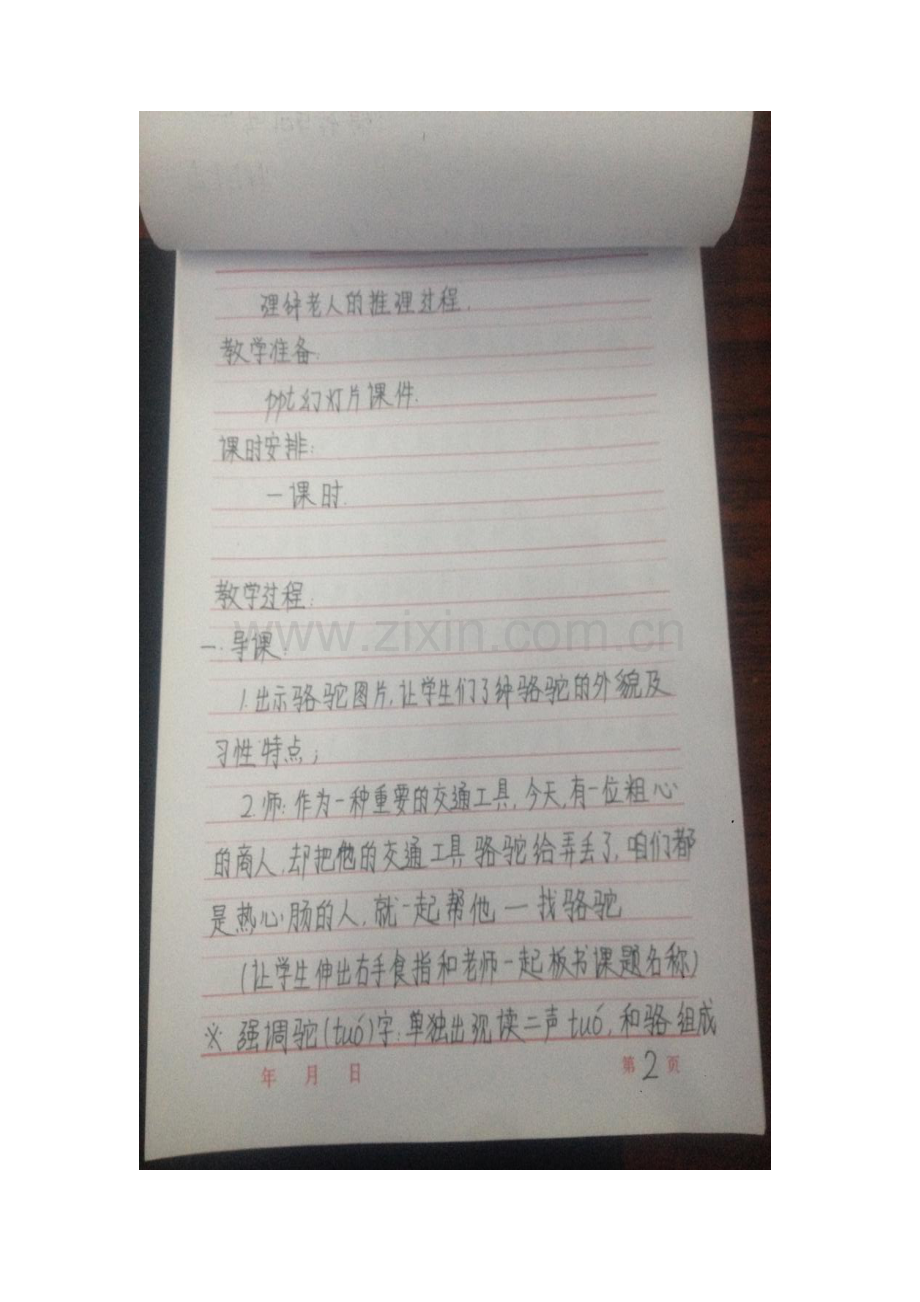 理解老人的推理过程.
教学准备:
ppt幻灯片课件.
课时安排:
一课时.
教学过程:
www.zixin.com.cn
一.导课:
1.出示骆驼图片,让学生们了解骆驼的外貌及
习性特点;
2.师:作为一种重要的交通工具,今天,有一位粗心
的商人,却把他的交通工具骆驼给弄丢了,咱们都
是热心肠的人,就一起帮他一找骆驼
(让学生伸出右手食指和老师一起板书课题名称)
※ 强调驼(tuó)字:单独出现读二声tuó,和骆组成
年 月 日 第2页